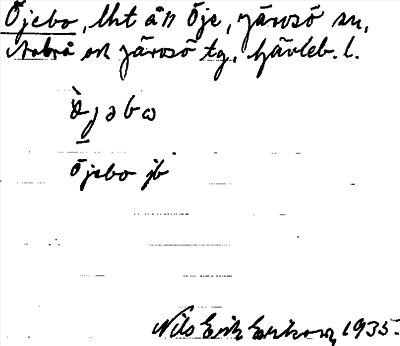 Öjebo, lht å̊n Öje, Järvsö sn,
Norbrå en Järvsö tg, Gävleb. l.
ὸ̱jəbω
Öjebo jb
Nils Erik Eriksson, 1935.